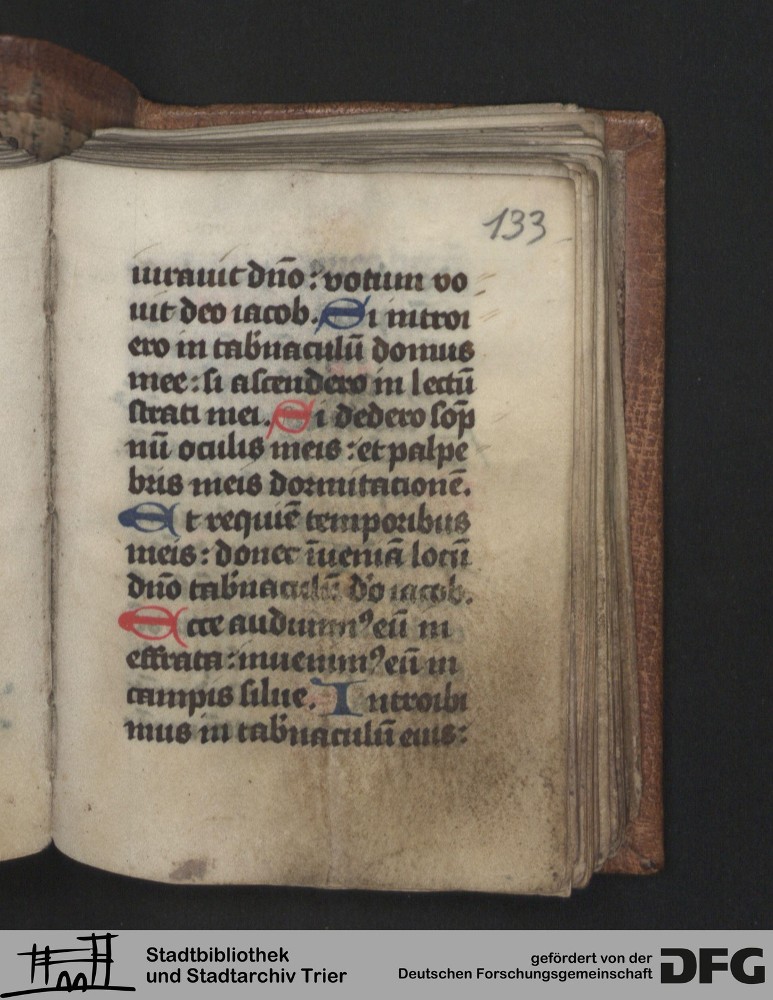 133
iurauit dño : votum vo
uit deo iacob. Si introi
ero in tab'naculū domus
mee : si ascendero in lectū
strati mei. Si dedero sop̄
nū oculis meis : et palpe
bris meis dormitacionē.
Et requiē temporibus
meis : donec īueniā locū
dño tab'naculū d'o iacob.
Ecce audiuim⁹ eū in
effrata : inuenim⁹ eū in
campis silue. Introibi
mus in tab'naculū eius :
Stadtbibliothek
und Stadtarchiv Trier
gefördert von der
Deutschen Forschungsgemeinschaft
DFG